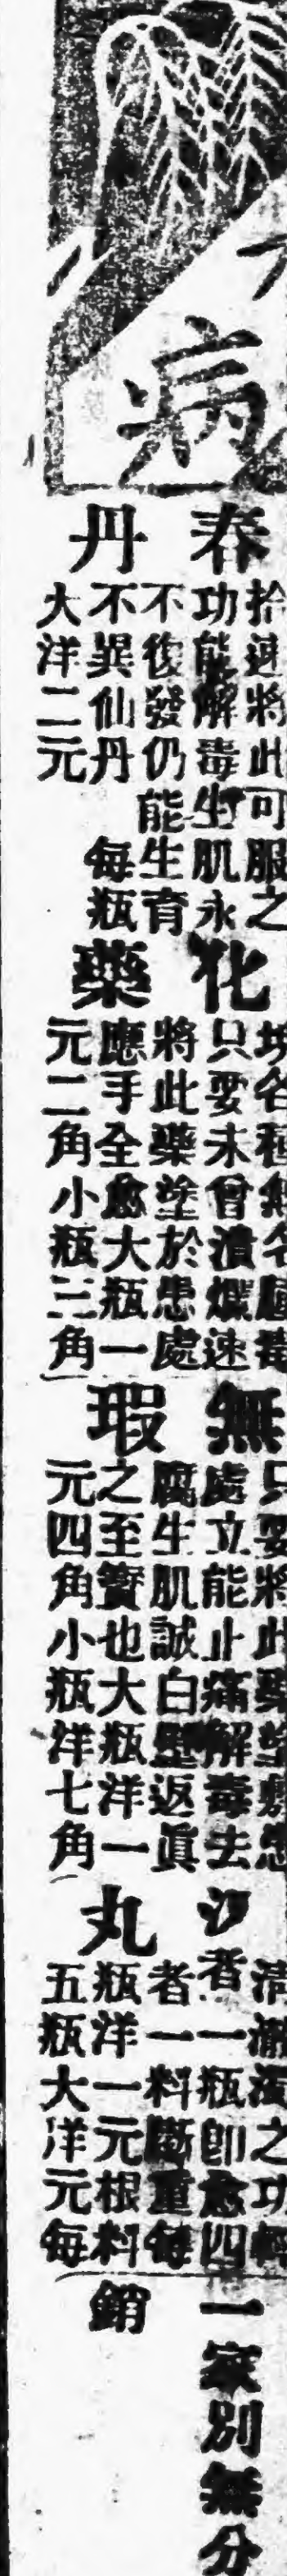 病
春
丹
拾速將此可服之
功能解毒生肌永
不復發仍能生育
不異仙丹 每瓶
大洋二元
化
藥
只要未曾潰爛速
將此藥塗於患處
應手全愈大瓶一
元二角小瓶三角
無
瑕
只要將此藥塗敷患
處立能止痛解毒去
腐生肌誠白璧返眞
之至寶也大瓶洋一
元四角小瓶洋七角
丸
之功輕
者一瓶卽愈四
者一料斷重每
瓶洋一元根料
五瓶大洋元每
一家別無分
銷